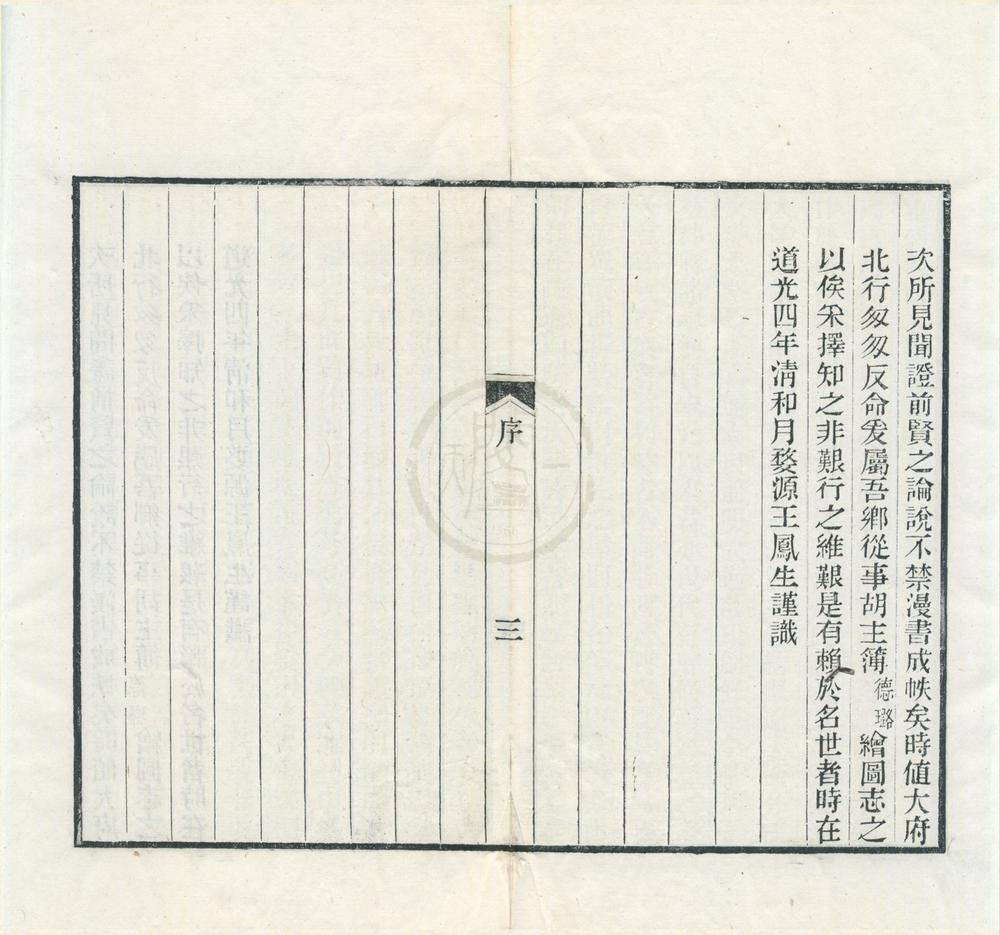 次所見聞證前賢之論說不禁漫書成帙矣時值大府
北行匆匆反命爰屬吾鄉從事胡主簿德璐繪圖志之
以俟采擇知之非艱行之維艱是有賴於名世者時在
道光四年清和月婺源王鳳生謹識
序
三